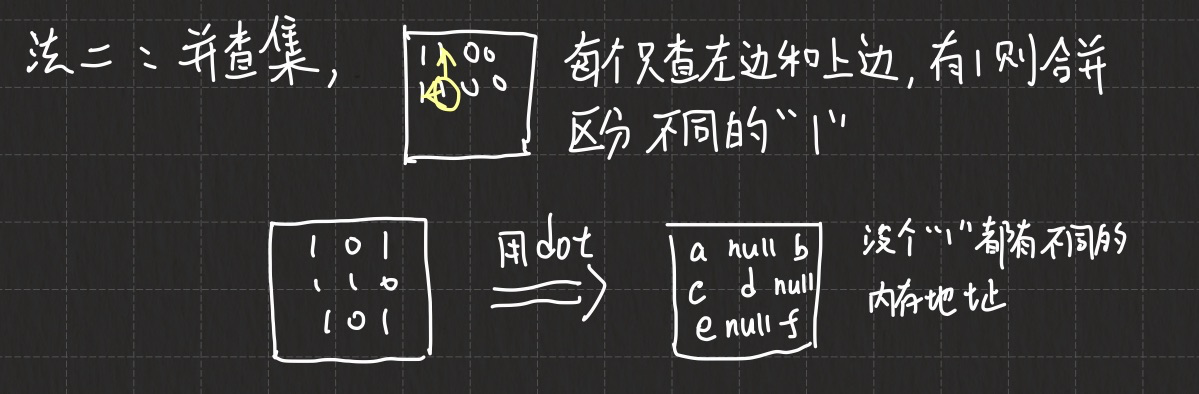 法二：并查集，
1 1 0 0
1 1 0 0
每个只查左边和上边，有1则合并
区分不同的“1”
1 0 1
1 1 0
1 0 1
用dot
a null b
c d null
e null f
没个“1”都有不同的
内存地址